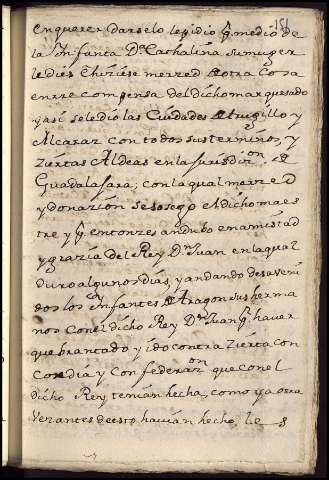 151
en querer darselo le pidio q̃ medio de
la Infanta D.ª Cathalina su muger
le dies Chiziese merzed de otra Cosa
en rrecompensa del dicho marquesado
y asi se le dio las Ciudades de trugillo y
Alcaraz con todos sus terminos, y
ziertas Aldeas en la jurisdiz.on de
Guadalajara; con la qual merzed
y donazion se sosego el dicho maes
tre y q̃ entonzes andubo en amistad
y grazia del Rey D.n Juan en la qual
duro algunos dias, y andando desaveni
dos los Infantes de Aragon sus herma
nos Con el dicho Rey D.n Juan q̃ haver
quebrantado y ido contra zierta con
Cordia y Confederaz.on que con el
dicho Rey tenian hecha, como ya otra
vez antes de esto havian hecho, le s